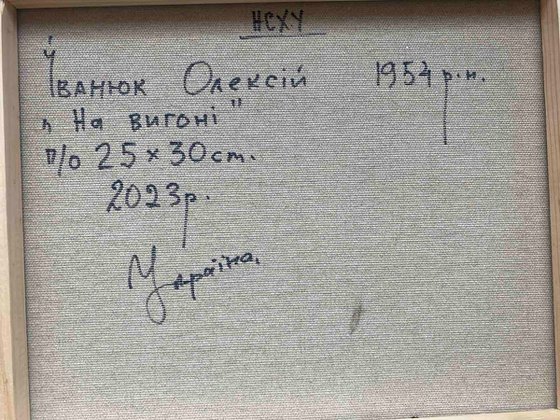 НСХУ
Іванюк Олексій 1954 р.н.
„На вигоні"
п/о 25×30 cm.
2023р.
Україна.